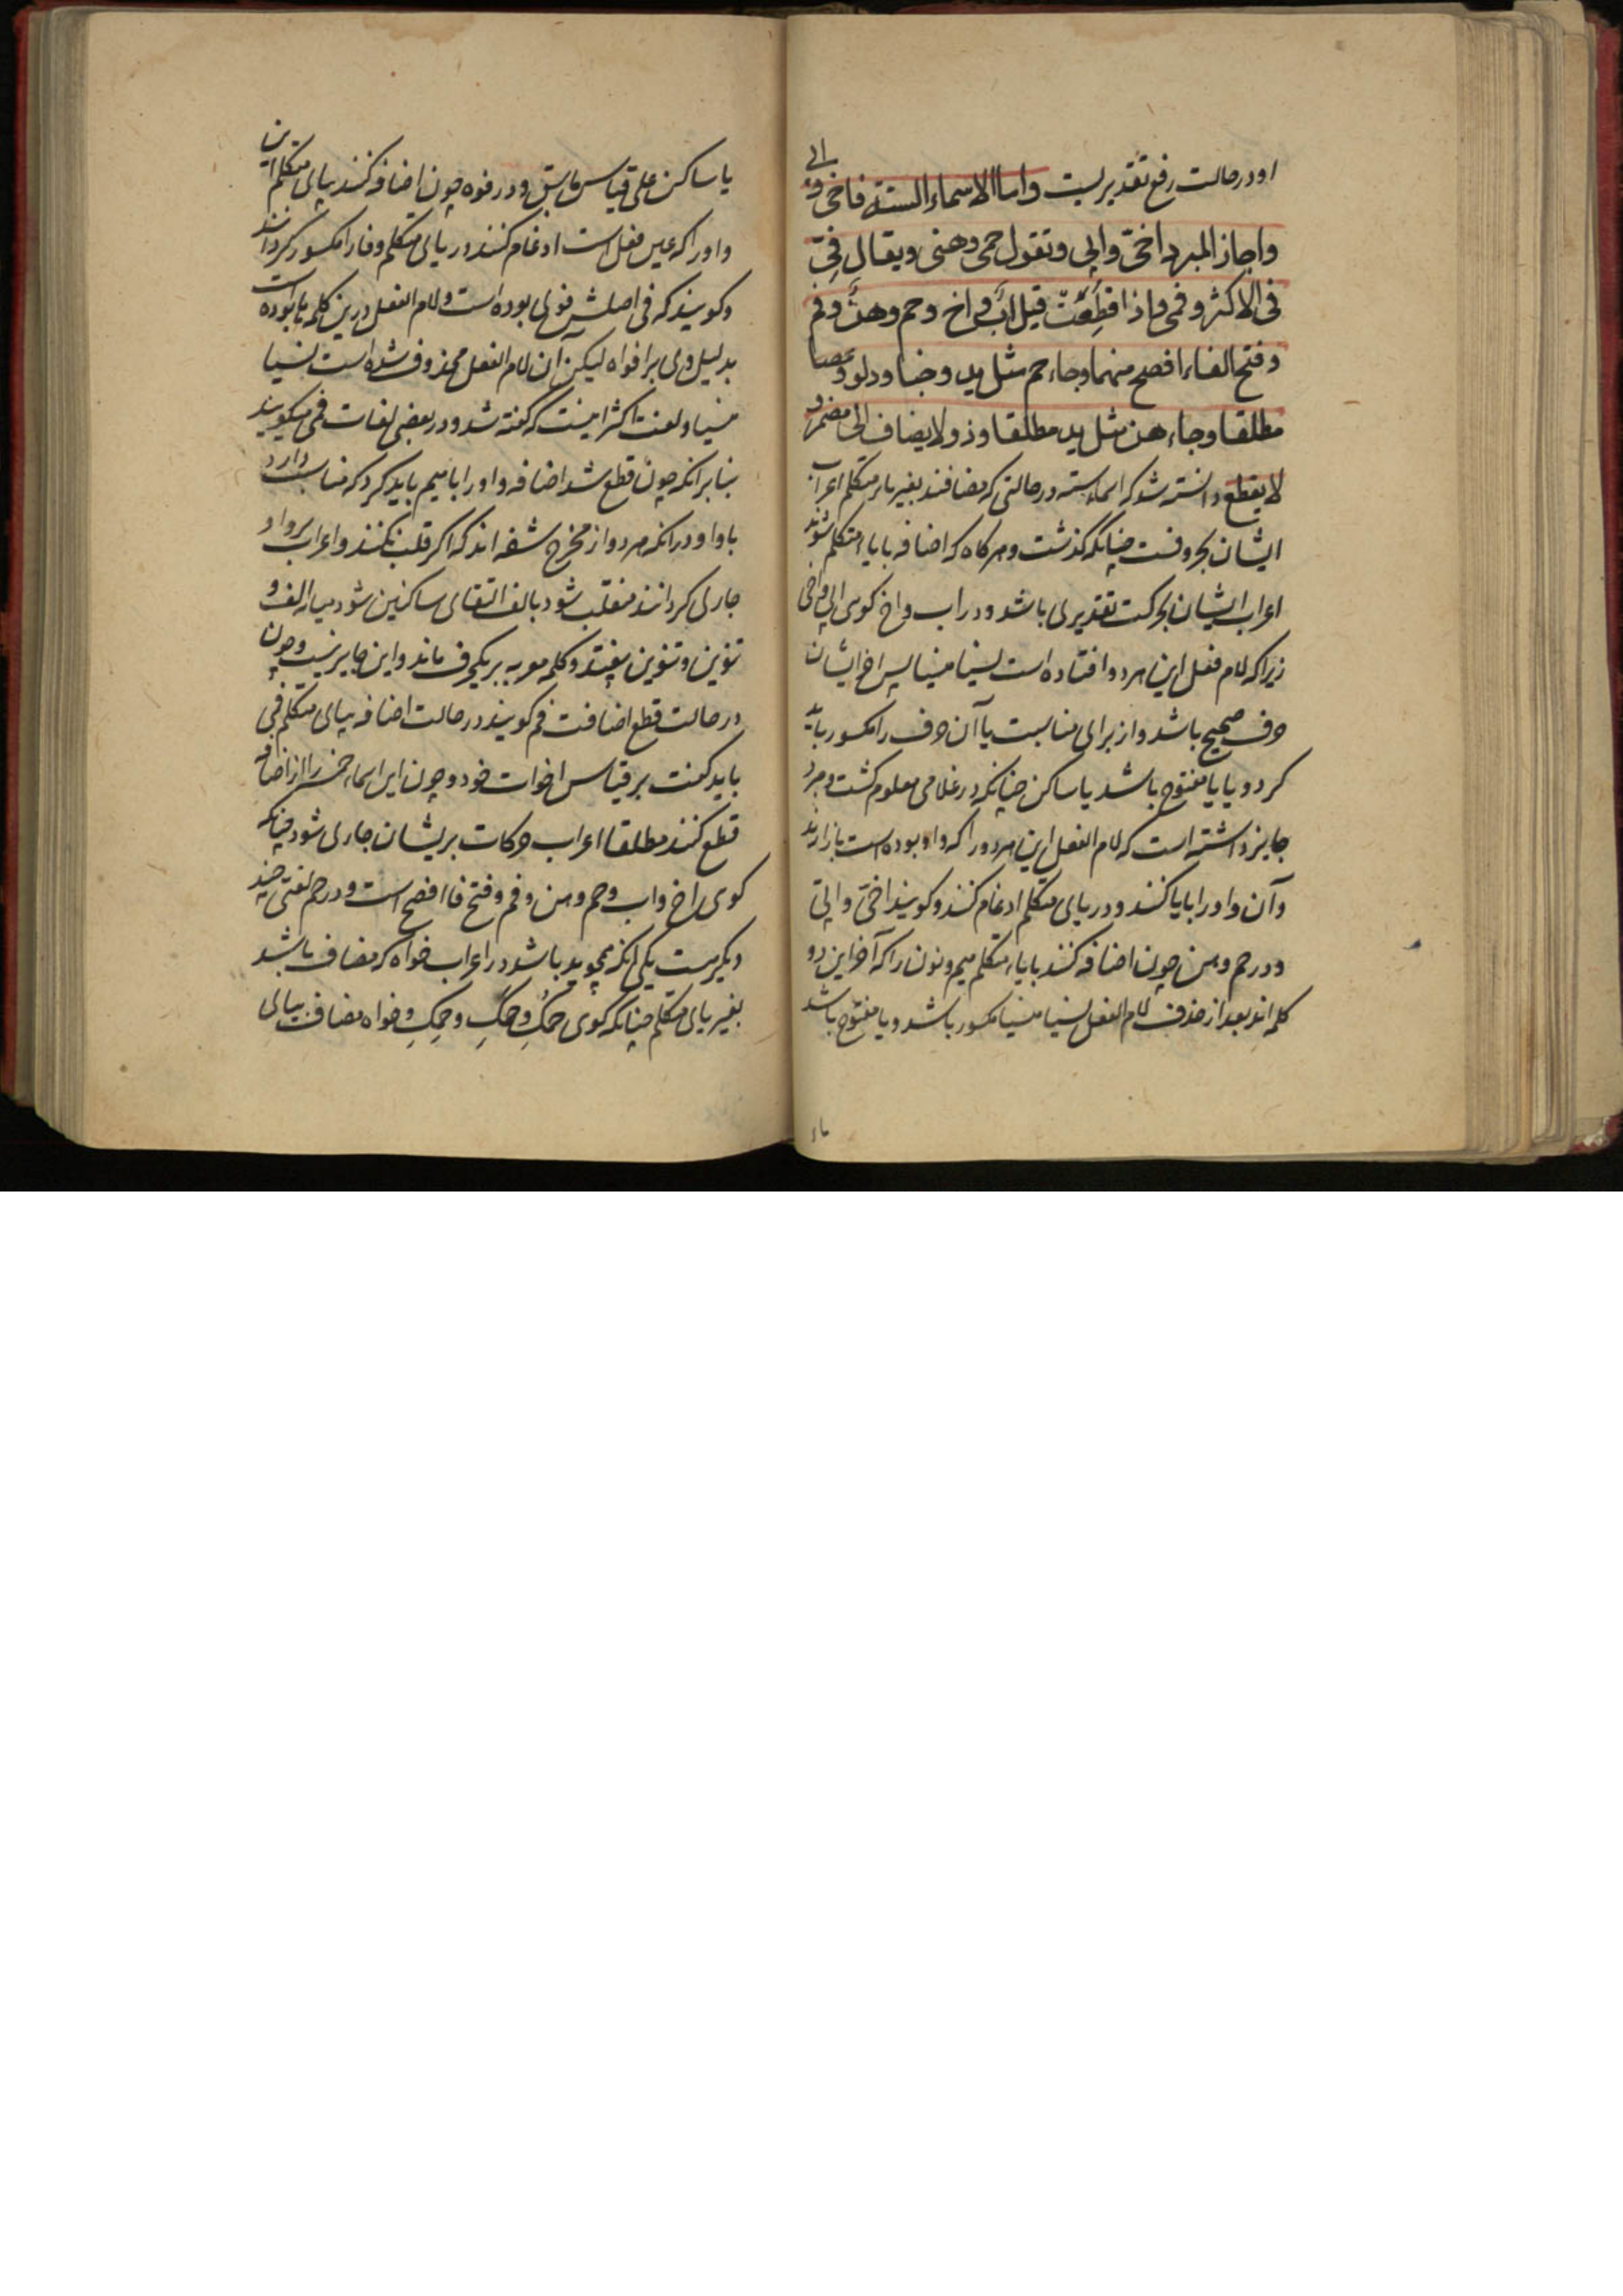 او در حالت رفع تقدیریست واما الاسماء الستة فاخی وابی
واجاز المبرد اخیّ وابیّ وتقول حمی وهنی ویقال فیّ
فی الاکثر وفمی واذا قطعت قیل اب واخ وحم وهن وفم
وفتح الفاء افصح منهما وجاء حم مثل ید وخبا ودلو وعصا
مطلقا وجاء هن مثل ید مطلقا وذو لا یضاف الی مضمر و
لا یقطع دانسته شد که اسماء سته در حالتی که مضافند بغیر یاء متکلم اعراب
ایشان بحروفست چنانکه گذشت و هرکاه که اضافه بایاء متکلم شوند
اعراب ایشان بحرکت تقدیری باشد و در اب و اخ کوی ابی و اخی
زیرا که لام فعل این هر دو افتاده است نسیا منسیا پس اخر ایشان
حرف صحیح باشد و از برای مناسبت یا آن حرف را مکسور باید
کرد و یا یا مفتوح باشد یا ساکن چنانکه در غلامی معلوم کشت و مبرد
جایز داشته است که لام الفعل این هر دو را که واو بوده است باز ارند
وآن واو را بایا کنند و در یای متکلم ادغام کنند و کویند اخیّ وابیّ
و در حم و هن چون اضافه کنند بایاء متکلم میم و نون را که آخر این دو
کلمه اند بعد از حذف لام الفعل نسیا منسیا مکسور باشد و یا مفتوح باشد
یا ساکن علی قیاس ما سبق و در فوه چون اضافه کنند بیای متکلم این
واو را که عین فعل است ادغام کنند در یای متکلم و فا را مکسور کردانند
و کویند که فی اصلش فوی بوده است و لام الفعل درین کلمه ها بوده است
بدلیل وی بر افواه لیکن آن لام الفعل محذوف شده است نسیا
منسیا و لغت اکثر اینست که کفته شد و در بعضی لغات فمی میکویند
بنا برانکه چون قطع شد اضافه واو را بامیم باید کرد که مناسبت دارد
با واو در انکه هر دو از مخرج شفه اند که اکر قلب نکنند و اعراب بر واو
جاری کردانند منقلب شود بالف التقای ساکنین شود میان الف و
تنوین و تنوین بیفتد و کلمه معربه بر یکحرف ماند و این جایز نیست و چون
در حالت قطع اضافت فم کویند در حالت اضافه بیای متکلم فمی
باید کفت بر قیاس اخوات خود و چون این اسماء خمسه را از اضافه
قطع کنند مطلقا اعراب حرکات بر یشان جاری شود چنانکه
کوی اخ و اب و حم و هن و فم و فتح فا افصح است و در حم لغتی چند
دیکرست یکی انکه همچو ید باشد در اعراب خواه که مضاف باشد
بغیر یای متکلم چنانکه کوی حمُکِ و حمَکِ و حمِکِ و خواه مضاف بیای